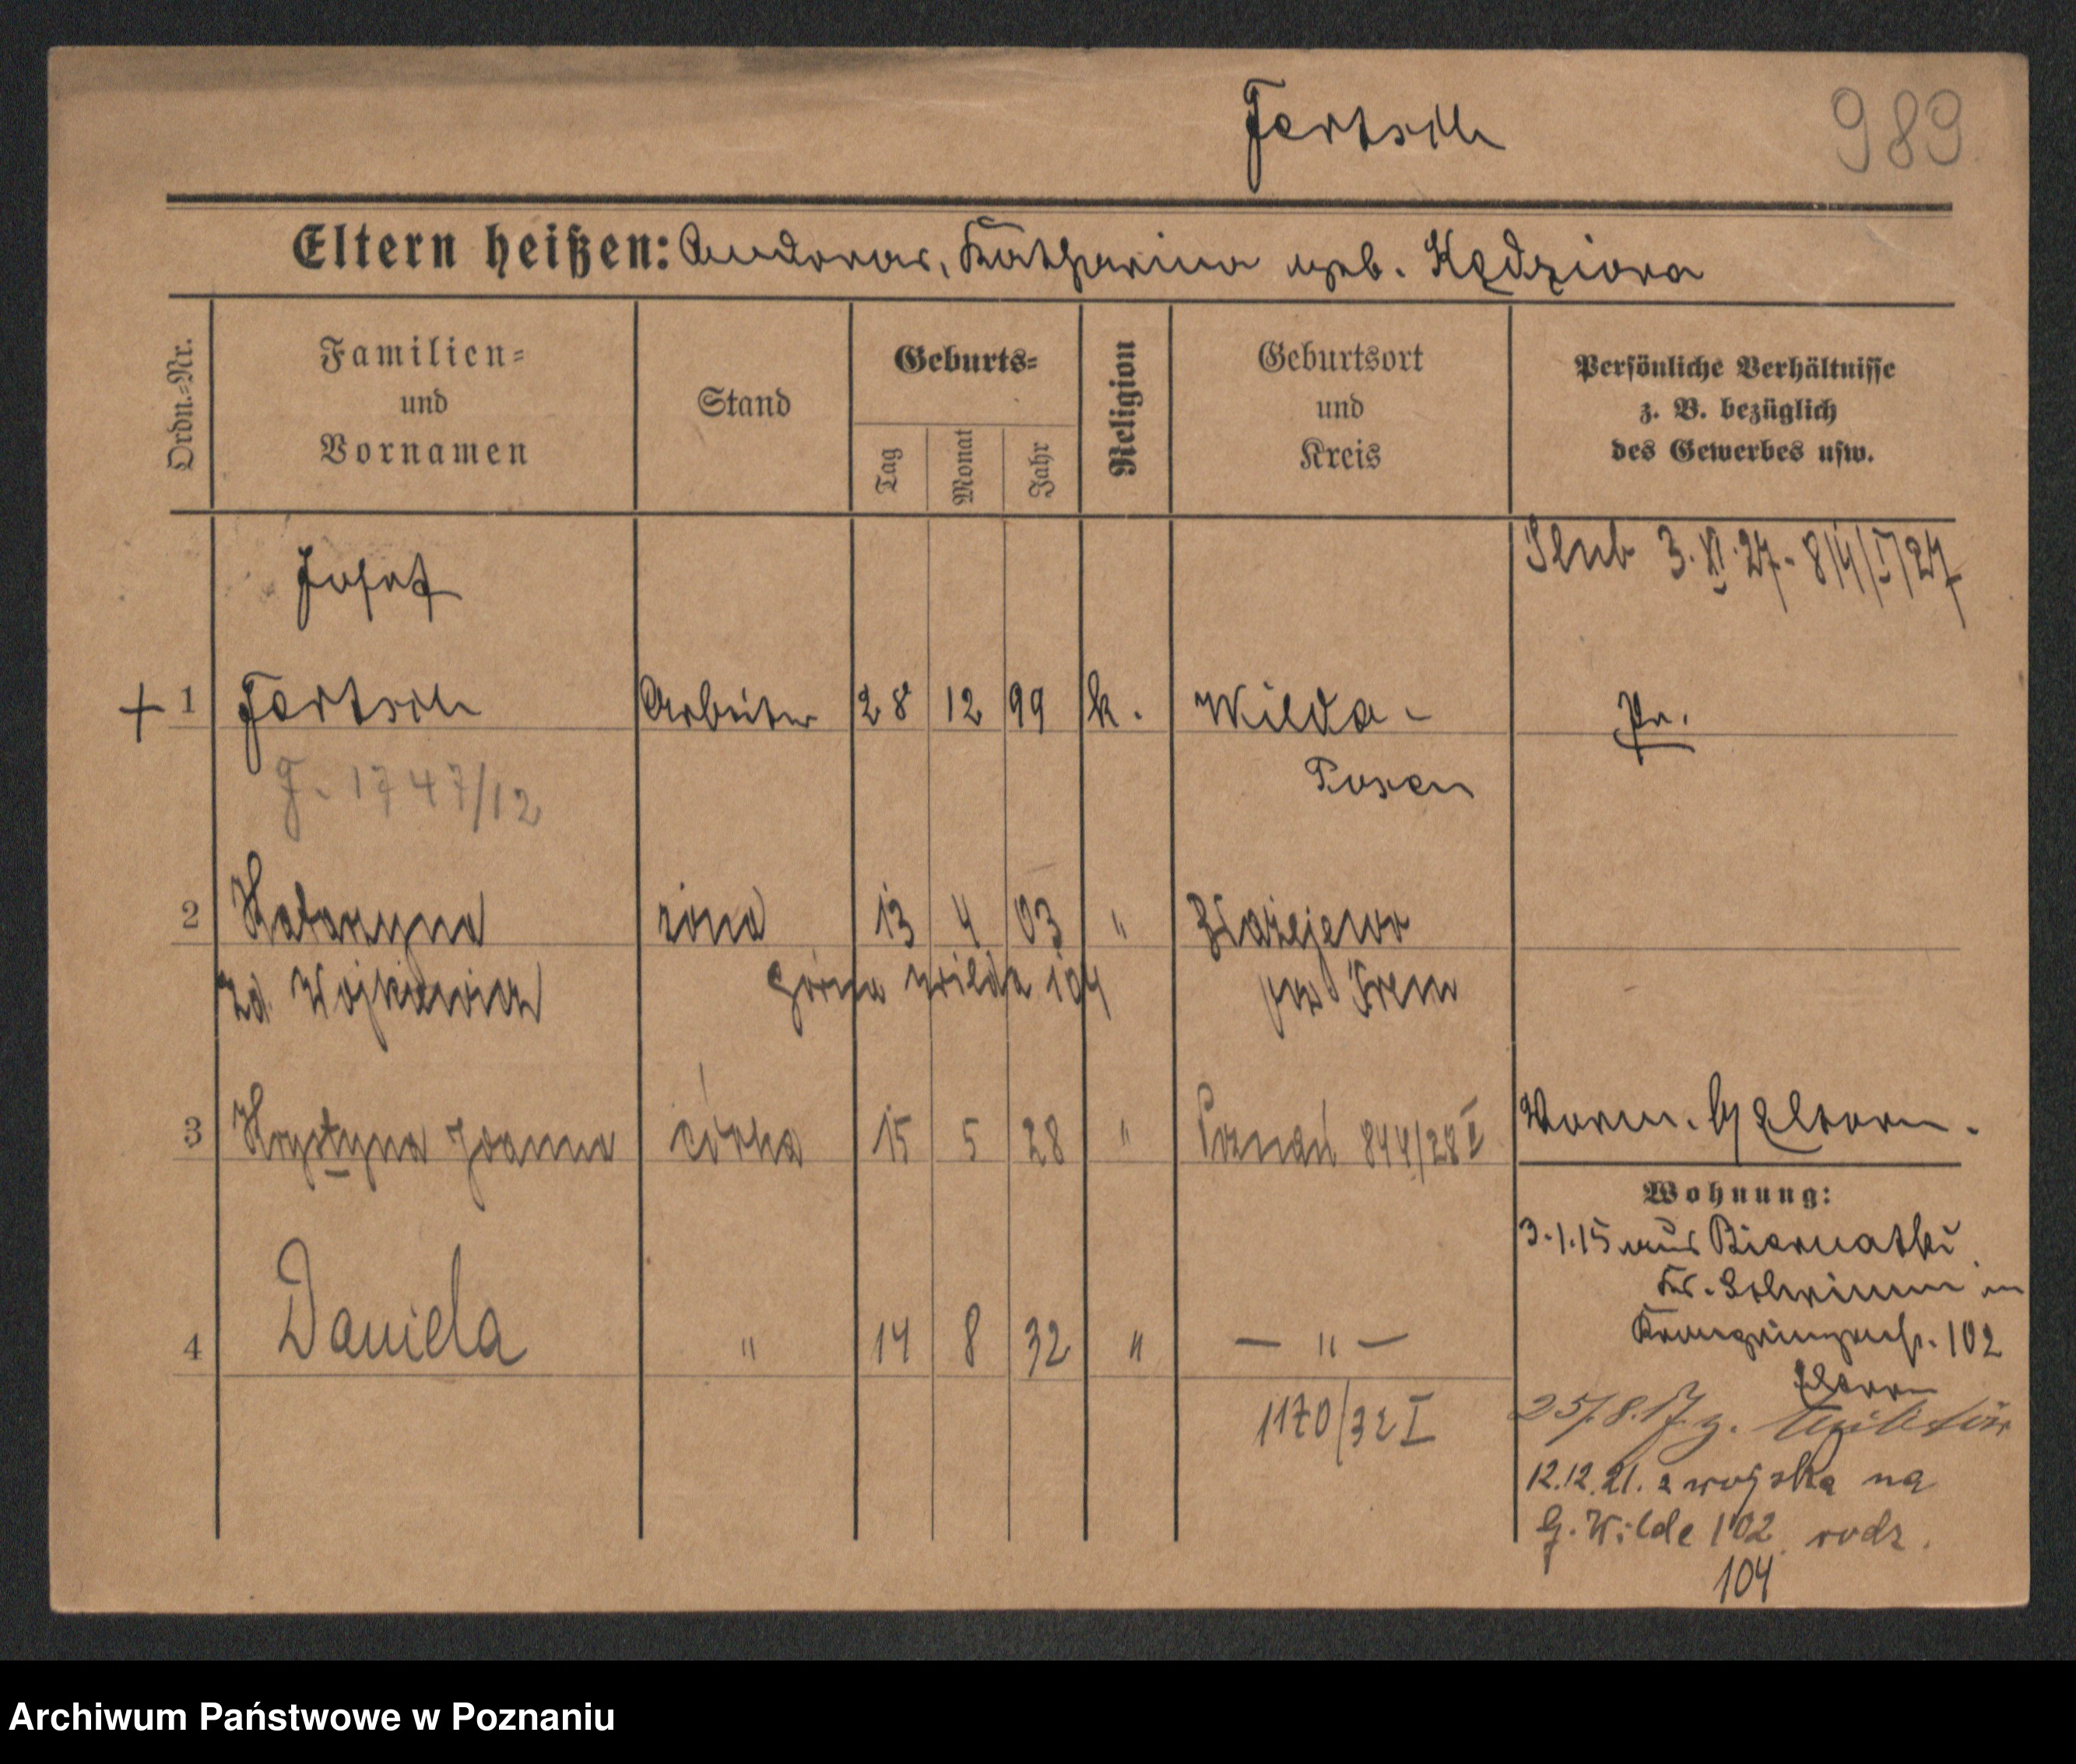 Fertsch
989
Eltern heißen: Andreas, Katharina geb. Kędziora
Ordn.-Nr.
Familien- und Vornamen
Stand
Geburts-
Tag
Monat
Jahr
Religion
Geburtsort und Kreis
Persönliche Verhältnisse
z. B. bezüglich
des Gewerbes usw.
Ślub 3. XI. 27 - 814/I/27
Josef
1 Fertsch Arbeiter 28 12 99 k. Wilda - Pr.
Posen
J. 1747/12
2 Katarzyna żona 13 4 03 " Błażejewo
zd. Wojkiewicz Górna Wilda 104 pow Śrem
3 Krystyna Joanna córka 15 5 28 " Poznań 844/28 I
Vorm. Eltern.
Wohnung:
3.1.15 aus Biernatki
Kr. Schrimm in
Kronprinzenstr. 102
Eltern
4 Daniela " 14 8 32 " — " —
1170/32 I
25/8.17 z. Militär
12.12.21. z wojska na
G. Wilde 102 rodz.
104
Archiwum Państwowe w Poznaniu